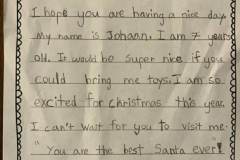 I hope you are having a nice day.
My name is Johaan. I am 7 years
old. It would be super nice if you
could bring me toys. I am so
excited for christmas this year.
I can't wait for you to visit me.
"You are the best Santa ever!